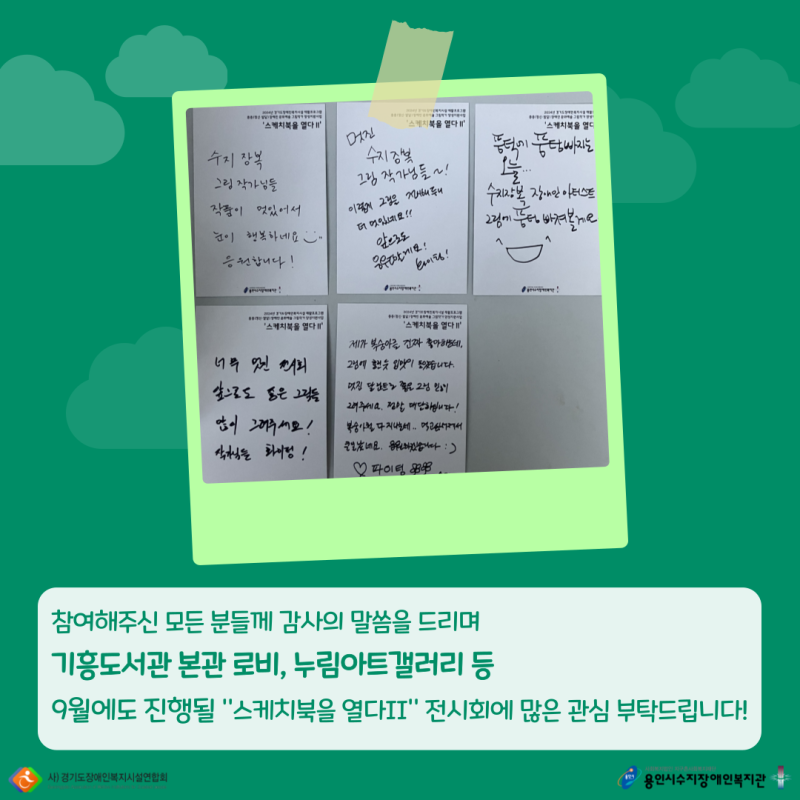 '스케치북을 열다Ⅱ'
수지 장복
그림 작가님들
작품이 멋있어서
눈이 행복하네요
응원합니다!
'스케치북을 열다Ⅱ'
멋진
수지 장복
그림 작가님들~!
이렇게 그림은
더 멋있네요!!
앞으로도
응원할게요!
화이팅!
'스케치북을 열다
풍덩 빠지는
오늘...
수지장복 장애인 아티스트
그림에 풍덩 빠져볼게요
'스케치북을 열다Ⅱ'
너무 멋진 전시회
앞으로도 좋은 그림들
많이 그려주세요!
작가님들 화이팅!
'스케치북을 열다Ⅱ'
제가 복숭아를 진짜 좋아하는데,
그림에
멋진
그려주세요. 정말 대단하십니다!
복숭아철 다 지났는데..
응원하겠습니다 :)
♡ 파이팅
참여해주신 모든 분들께 감사의 말씀을 드리며
기흥도서관 본관 로비, 누림아트갤러리 등
9월에도 진행될 "스케치북을 열다II" 전시회에 많은 관심 부탁드립니다!
사) 경기도장애인복지시설연합회
용인시수지장애인복지관